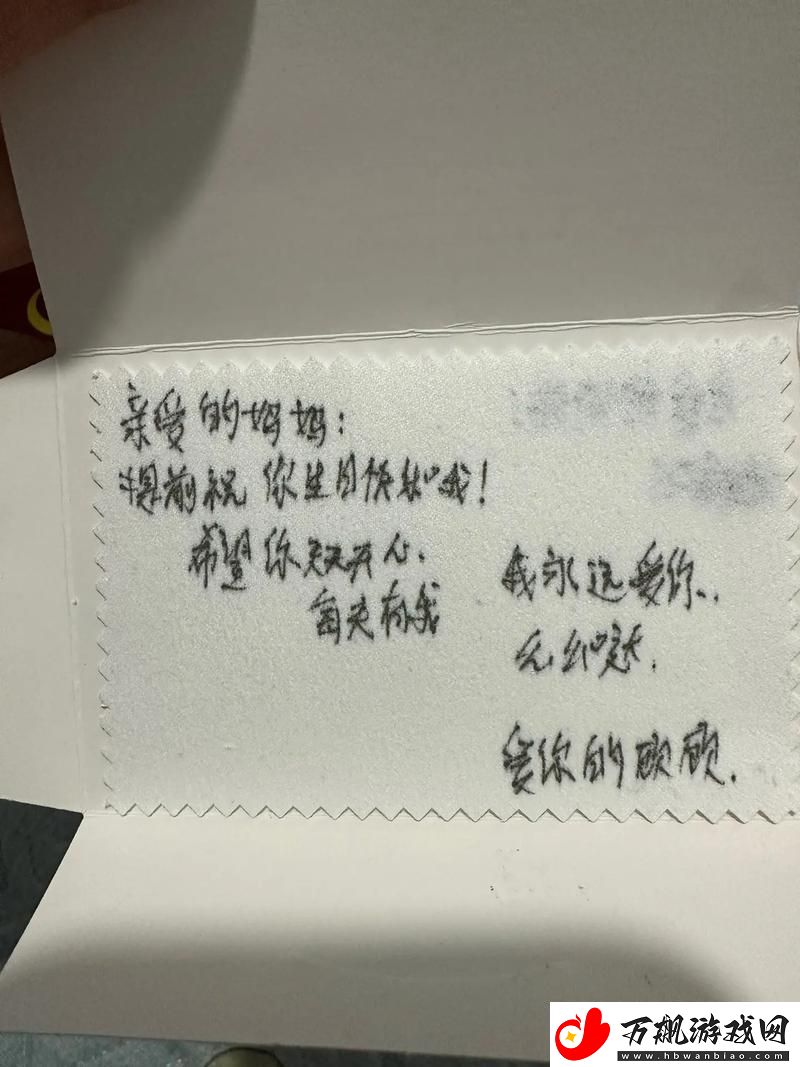 亲爱的妈妈:
提前祝你生日快乐哦!
希望你天天开心、
每天有我
我永远爱你、
无
爱你的顾顾.
万飙游戏网
www.hbwanbiao.com